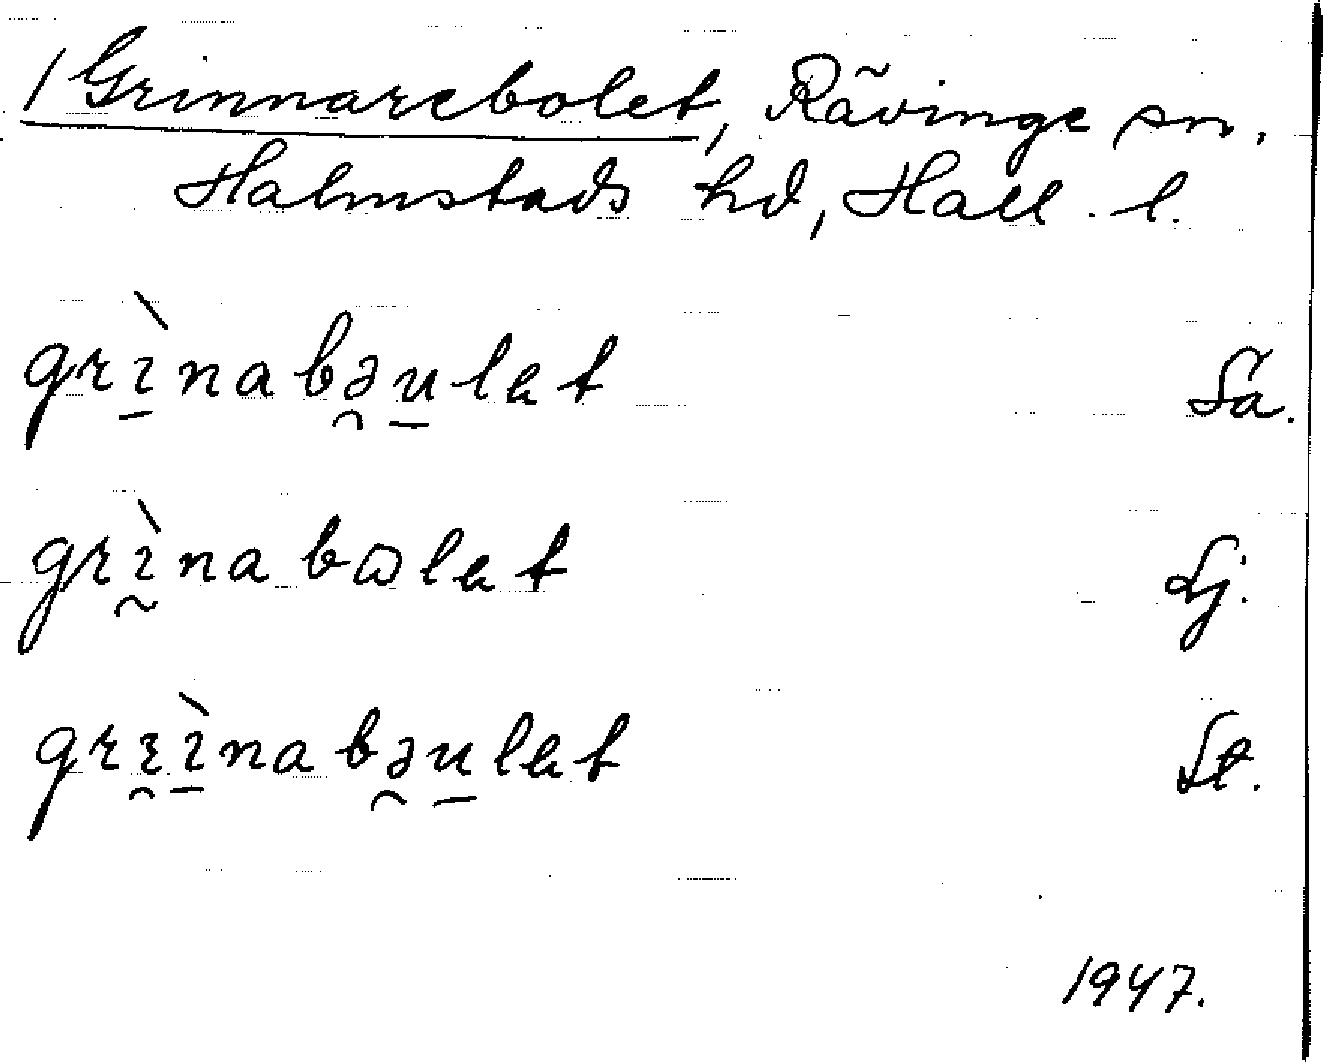 /Grinnarebolet, Rävinge sn.
Halmstads hd, Hall. l.
grı̀nabəulet Sä.
grı̀nabɷlet Lj.
grɪı̀nabəulet St.
1947.